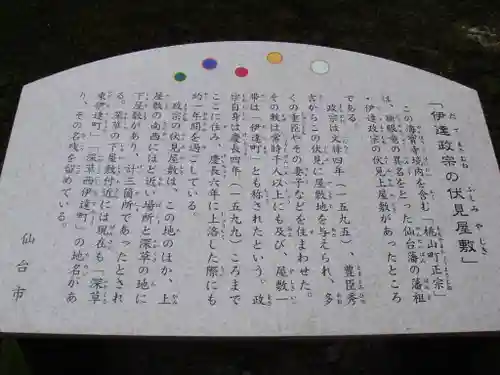 「伊達政宗の伏見屋敷」
だてまさむね ふしみやしき
この海宝寺境内を含む「桃山町正宗」
は、独眼竜の異名をとった仙台藩の藩祖
・伊達政宗の伏見上屋敷があったところ
である。
政宗は文禄四年（一五九五）、豊臣秀
吉からこの伏見に屋敷地を与えられ、多
くの重臣やその妻子などを住まわせた。
その数は常時千人以上にも及び、屋敷一
帯は「伊達町」とも称されたという。政
宗自身は慶長四年（一五九九）ころまで
ここに住み、慶長六年に上洛した際にも
約一年間を過ごしている。
政宗の伏見屋敷は、この地のほか、上
屋敷の南西にほど近い場所と深草の地に
下屋敷があり、計三箇所であったとされ
る。深草の下屋敷付近には現在も「深草
東伊達町」「深草西伊達町」の地名があ
り、その名残を留めている。
仙台市